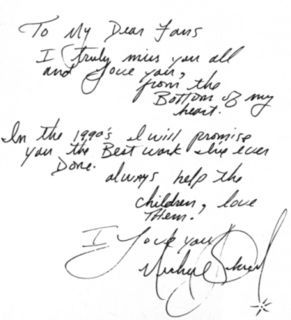 To My Dear Fans
I truly miss you all
and Love you,
from the
Bottom of my
heart.
In the 1990's I will promise
you the Best work I've ever
Done.
always help the
children, love
Them.
I Love you
Michael Jackson